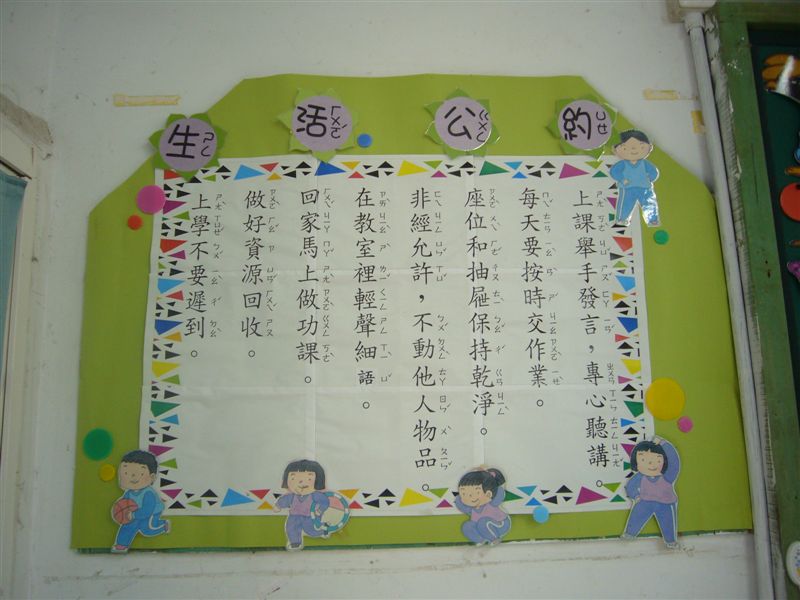 生活公約
上課舉手發言，專心聽講。
每天要按時交作業。
座位和抽屜保持乾淨。
非經允許，不動他人物品。
在教室裡輕聲細語。
回家馬上做功課。
做好資源回收。
上學不要遲到。